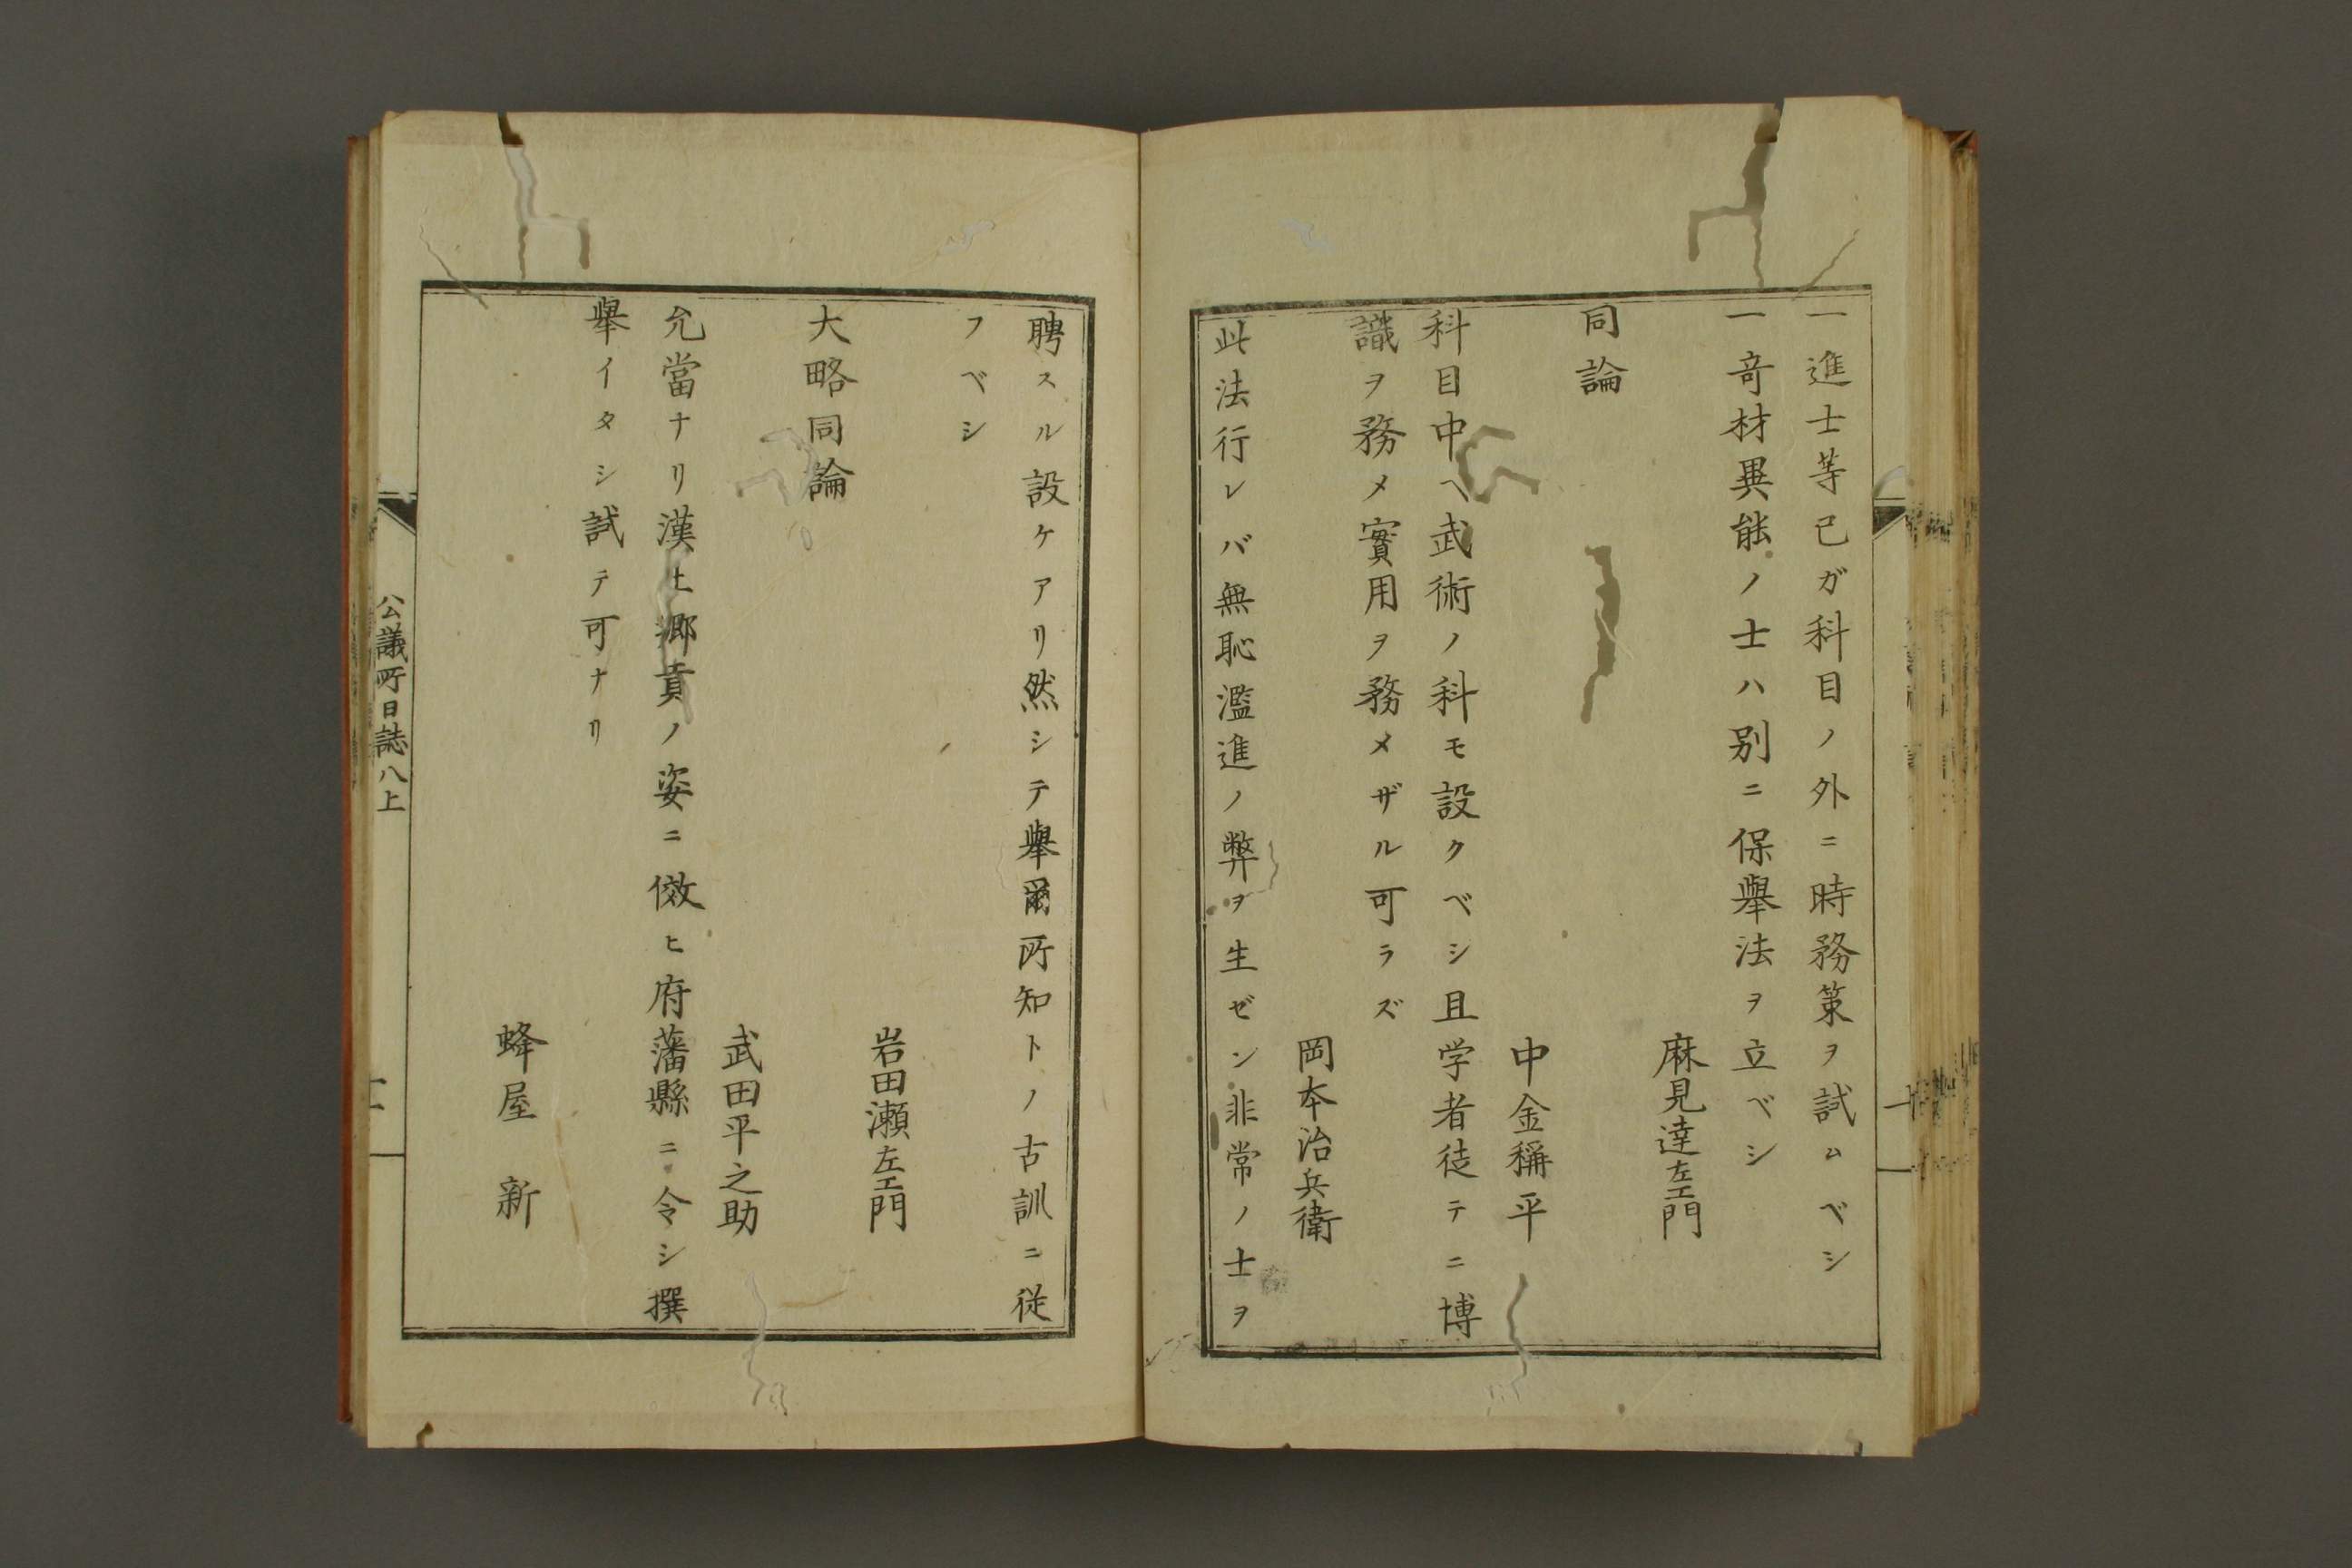 一進士等已ガ科目ノ外ニ時務策ヲ試ムベシ
一竒材異能ノ士ハ別ニ保擧法ヲ立ベシ
麻見達左エ門
同論
中金稱平
科目中ヘ武術ノ科モ設クベシ且学者徒テニ博
識ヲ務メ實用ヲ務メザル可ラズ
岡本治兵衛
此法行レバ無恥濫進ノ弊ヲ生ゼン非常ノ士ヲ
聘スル設ケアリ然シテ擧爾所知トノ古訓ニ従
フベシ
岩田瀬左エ門
大略同論
武田平之助
允當ナリ漢土郷貢ノ姿ニ傚ヒ府藩縣ニ令シ撰
擧イタシ試テ可ナリ
蜂屋新
公議所日誌八上